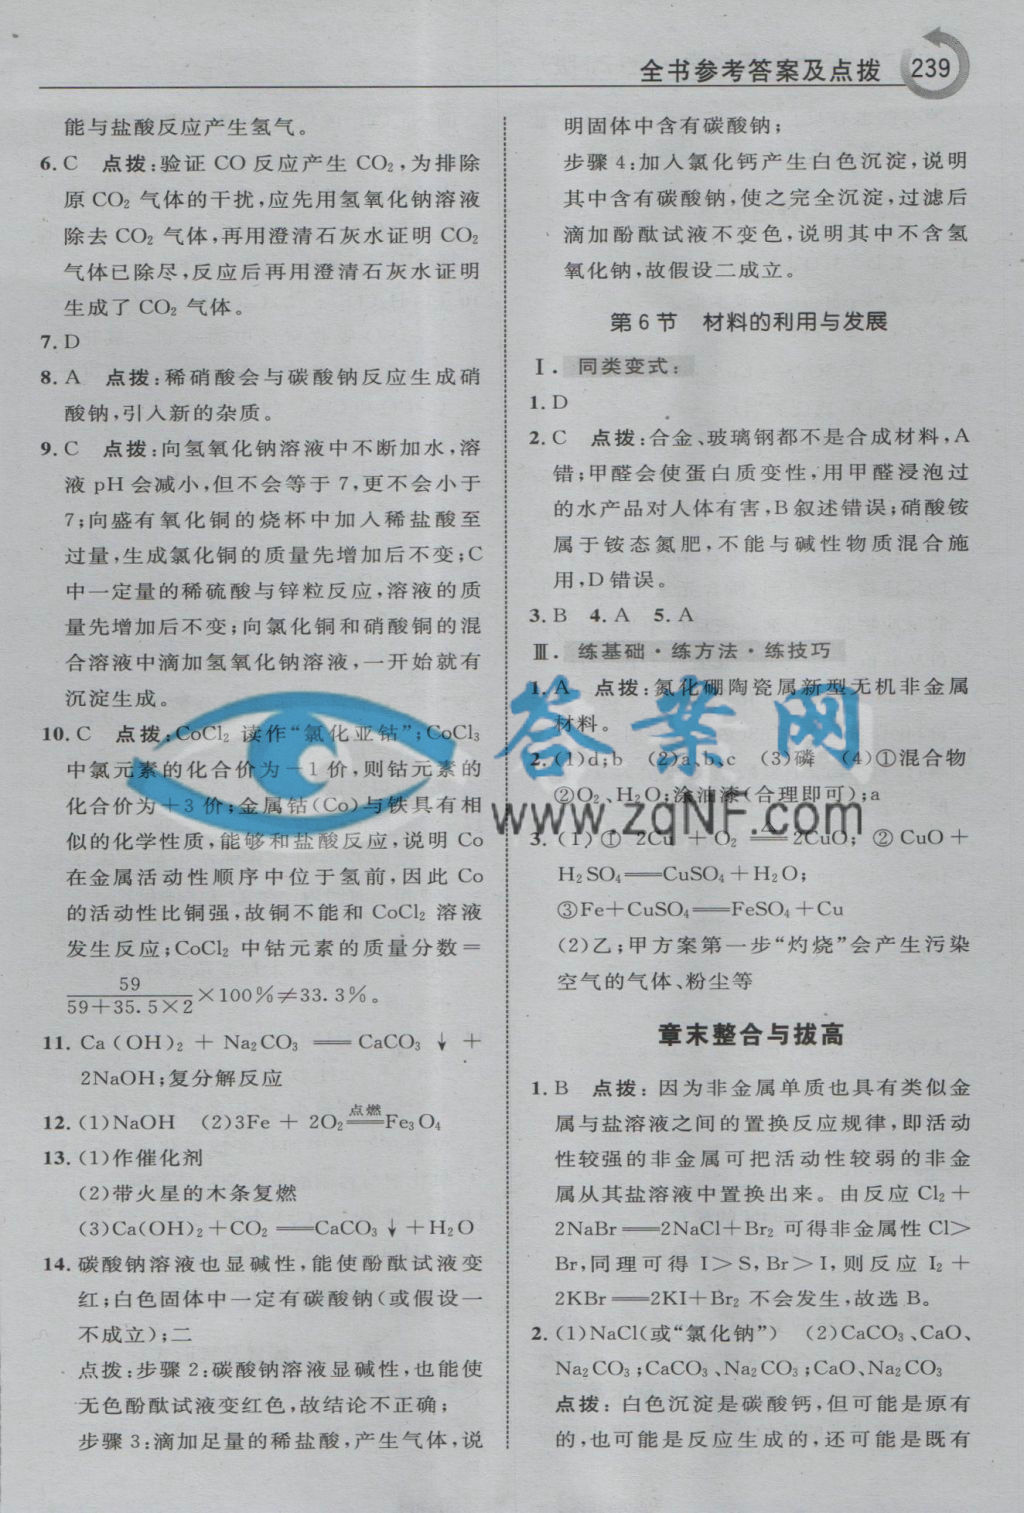 全书参考答案及点拨 239
能与盐酸反应产生氢气。
6. C 点拨:验证 CO 反应产生 CO₂,为排除
原 CO₂ 气体的干扰,应先用氢氧化钠溶液
除去 CO₂ 气体,再用澄清石灰水证明 CO₂
气体已除尽,反应后再用澄清石灰水证明
生成了 CO₂ 气体。
7. D
8. A 点拨:稀硝酸会与碳酸钠反应生成硝
酸钠,引入新的杂质。
9. C 点拨:向氢氧化钠溶液中不断加水,溶
液 pH 会减小,但不会等于 7,更不会小于
7;向盛有氧化铜的烧杯中加入稀盐酸至
过量,生成氯化铜的质量先增加后不变;C
中一定量的稀硫酸与锌粒反应,溶液的质
量先增加后不变;向氯化铜和硝酸铜的混
合溶液中滴加氢氧化钠溶液,一开始就有
沉淀生成。
10. C 点拨:CoCl₂ 读作“氯化亚钴”;CoCl₃
中氯元素的化合价为－1 价,则钴元素的
化合价为＋3 价;金属钴(Co)与铁具有相
似的化学性质,能够和盐酸反应,说明 Co
在金属活动性顺序中位于氢前,因此 Co
的活动性比铜强,故铜不能和 CoCl₂ 溶液
发生反应;CoCl₂ 中钴元素的质量分数＝
59
59＋35.5×2 ×100%≠33.3%。
11. Ca(OH)₂ ＋ Na₂CO₃ ══ CaCO₃↓ ＋
2NaOH;复分解反应
12. (1)NaOH (2)3Fe ＋ 2O₂ 点燃══ Fe₃O₄
13. (1)作催化剂
(2)带火星的木条复燃
(3)Ca(OH)₂＋CO₂ ══CaCO₃↓＋H₂O
14. 碳酸钠溶液也显碱性,能使酚酞试液变
红;白色固体中一定有碳酸钠(或假设一
不成立);二
点拨:步骤 2:碳酸钠溶液显碱性,也能使
无色酚酞试液变红色,故结论不正确;
步骤 3:滴加足量的稀盐酸,产生气体,说
明固体中含有碳酸钠;
步骤 4:加入氯化钙产生白色沉淀,说明
其中含有碳酸钠,使之完全沉淀,过滤后
滴加酚酞试液不变色,说明其中不含氢
氧化钠,故假设二成立。
第 6 节 材料的利用与发展
Ⅰ. 同类变式:
1. D
2. C 点拨:合金、玻璃钢都不是合成材料,A
错;甲醛会使蛋白质变性,用甲醛浸泡过
的水产品对人体有害,B 叙述错误;硝酸铵
属于铵态氮肥,不能与碱性物质混合施
用,D 错误。
3. B 4. A 5. A
Ⅲ. 练基础·练方法·练技巧
1. A 点拨:氮化硼陶瓷属新型无机非金属
材料。
2. (1)d;b (2)a、b、c (3)磷 (4)①混合物
②O₂、H₂O;涂油漆(合理即可);a
3. (1)① 2Cu ＋ O₂ △══ 2CuO; ② CuO＋
H₂SO₄══CuSO₄＋H₂O;
③Fe＋CuSO₄══FeSO₄＋Cu
(2)乙;甲方案第一步“灼烧”会产生污染
空气的气体、粉尘等
章末整合与拔高
1. B 点拨: 因为非金属单质也具有类似金
属与盐溶液之间的置换反应规律,即活动
性较强的非金属可把活动性较弱的非金
属从其盐溶液中置换出来。由反应 Cl₂＋
2NaBr══2NaCl＋Br₂ 可得非金属性 Cl＞
Br,同理可得 I＞S,Br＞I,则反应 I₂＋
2KBr══2KI＋Br₂ 不会发生,故选 B。
2. (1)NaCl(或“氯化钠”) (2)CaCO₃、CaO、
Na₂CO₃;CaCO₃、Na₂CO₃;CaO、Na₂CO₃
点拨: 白色沉淀是碳酸钙,但可能是原有
的,也可能是反应生成的,还可能是既有
答案网
www.zqNF.com